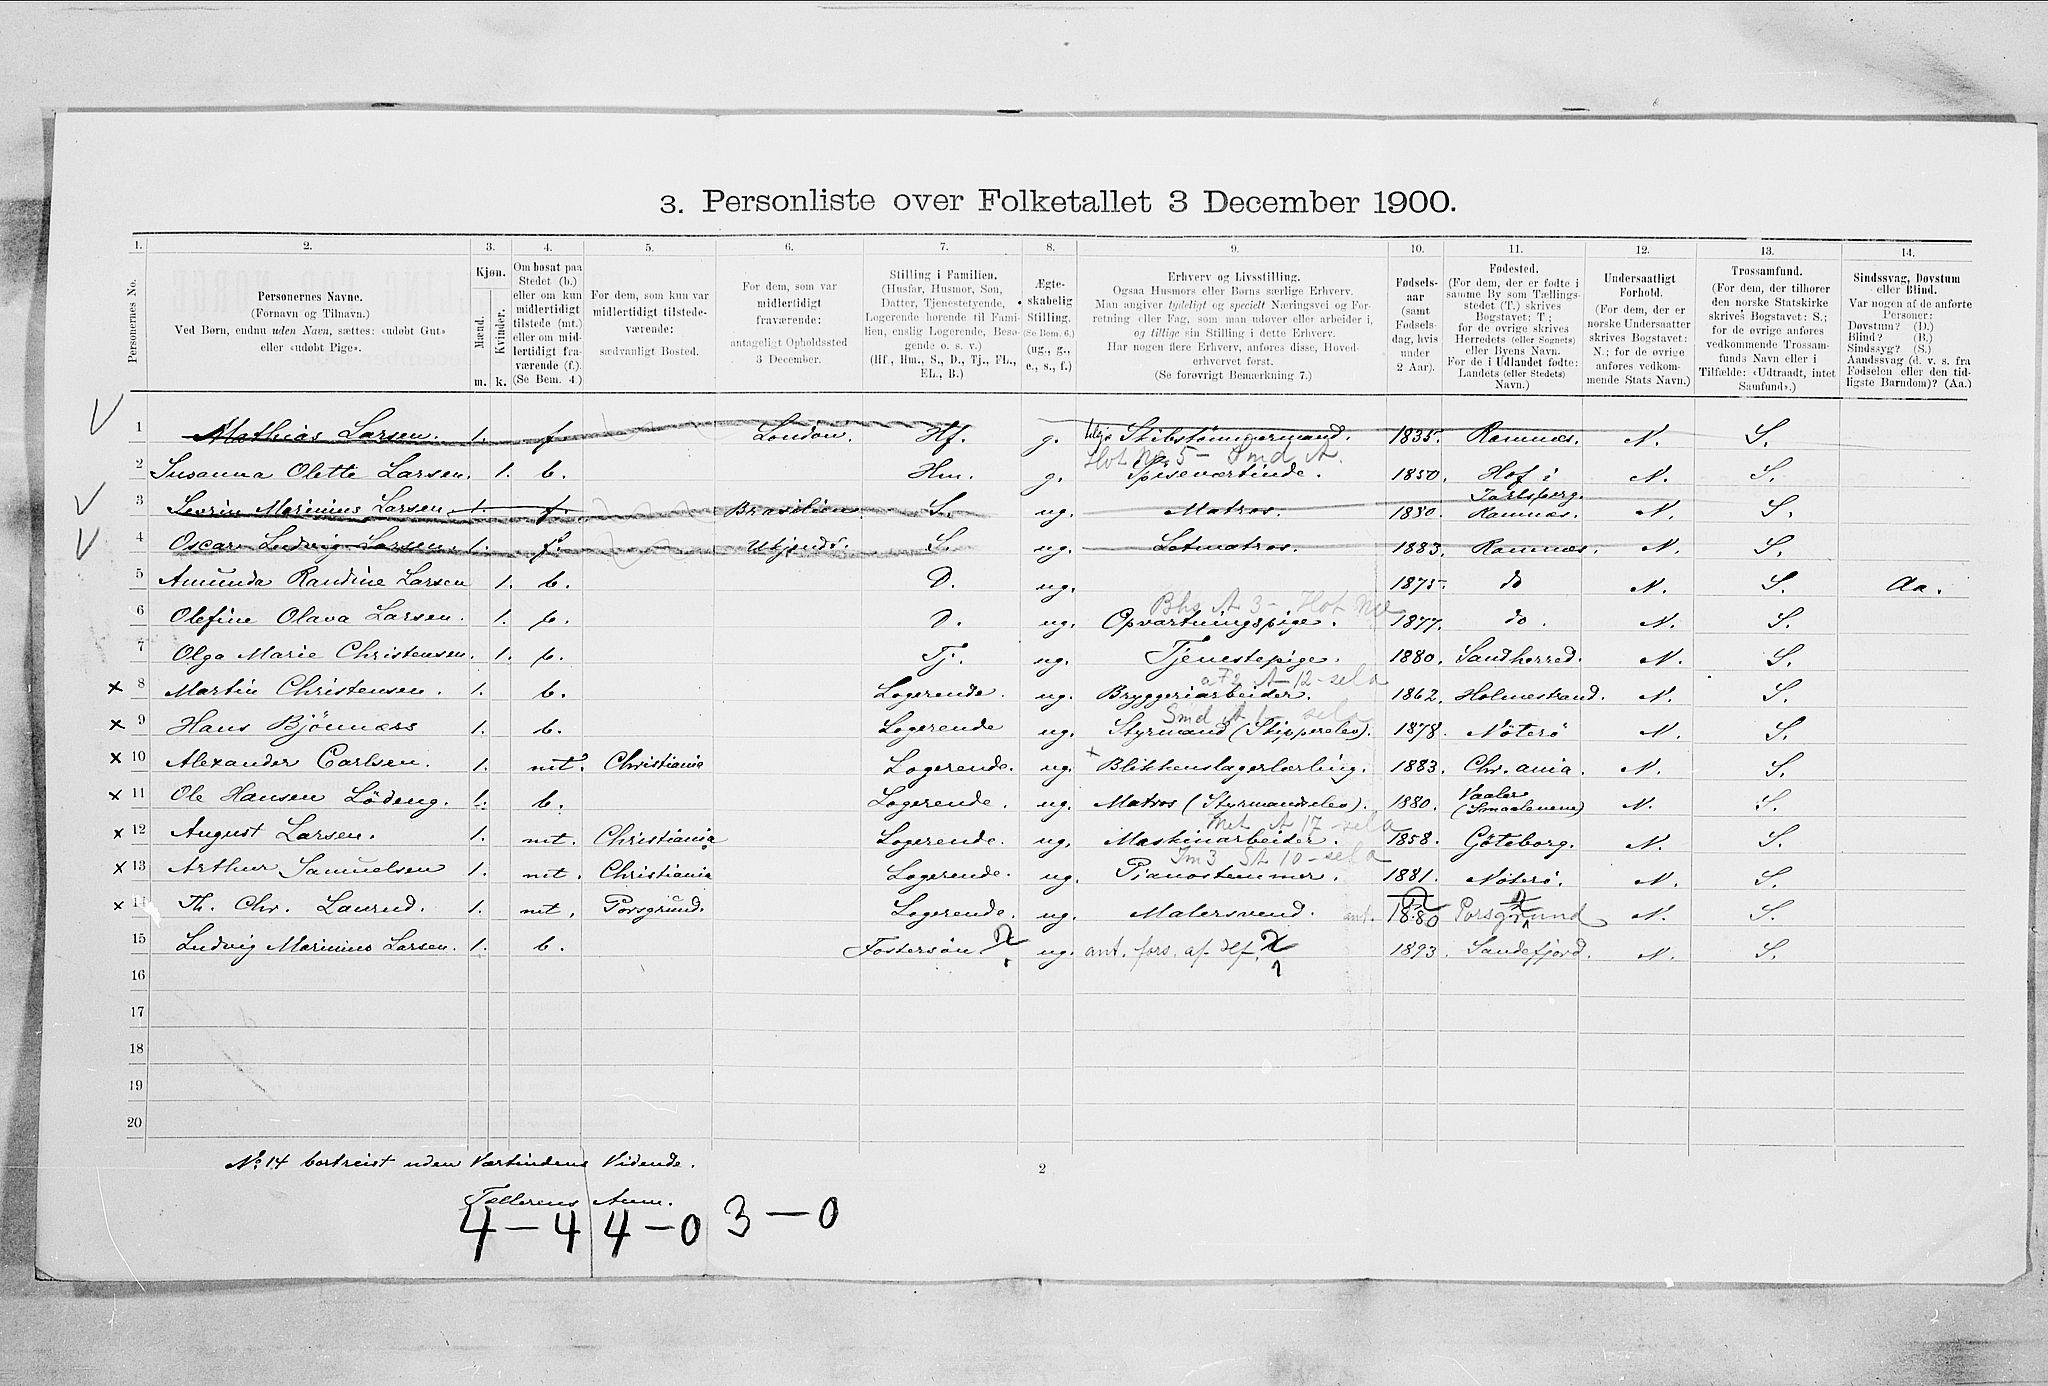 3. Personliste over Folketallet 3 December 1900.
1. 2. 3. 4. 5. 6. 7. 8. 9. 10. 11. 12. 13. 14.
Personernes No.
Personernes Navne.
(Fornavn og Tilnavn.)
Ved Børn, endnu uden Navn, sættes: «udøbt Gut»
eller «udøbt Pige».
Kjøn.
Mænd.
Kvinder.
m. k.
Om bosat paa
Stedet (b.)
eller om kun
midlertidigt
tilstede (mt.)
eller om mid-
lertidigt fra-
værende (f.).
(Se Bem. 4.)
For dem, som kun var
midlertidigt tilstede-
værende:
sædvanligt Bosted.
For dem, som var
midlertidigt
fraværende:
antageligt Opholdssted
3 December.
Stilling i Familien.
(Husfar, Husmor, Søn,
Datter, Tjenestetyende,
Logerende hørende til Fami-
lien, enslig Logerende, Besø-
gende o. s. v.)
(Hf., Hm., S., D., Tj., FL.,
EL., B.)
Ægte-
skabelig
Stilling.
(Se Bem. 6.)
(ug., g.,
e., s., f.)
Erhverv og Livsstilling.
Ogsaa Husmors eller Børns særlige Erhverv.
Man angiver tydeligt og specielt Næringsvei og For-
retning eller Fag, som man udøver eller arbeider i,
og tillige sin Stilling i dette Erhverv.
Har nogen flere Erhverv, anføres disse, Hoved-
erhvervet først.
(Se forøvrigt Bemærkning 7.)
Fødsels-
aar
(samt
Fødsels-
dag, hvis
under
2 Aar).
Fødested.
(For dem, der er fødte i
samme By som Tællings-
stedet (T.) skrives
Bogstavet: T.;
for de øvrige skrives
Herredets (eller Sognets)
eller Byens Navn.
For de i Udlandet fødte:
Landets (eller Stedets)
Navn.)
Undersaatligt
Forhold.
(For dem, der er
norske Undersaatter
skrives Bogstavet:
N.; for de øvrige
anføres vedkom-
mende Stats Navn.)
Trossamfund.
(For dem, der tilhører
den norske Statskirke
skrives Bogstavet: S.;
for de øvrige anføres
vedkommende Trossam-
funds Navn eller i
Tilfælde: «Udtraadt, intet
Samfund».)
Sindssvag, Døvstum
eller Blind.
Var nogen af de anførte
Personer:
Døvstum? (D.)
Blind? (B.)
Sindssyg? (S.)
Aandssvag (d. v. s. fra
Fødselen eller den tid-
ligste Barndom)? (Aa.)
1 Mathias Larsen. 1. f. London. Hf. g. Skibstømmermand. 1835. Ramnæs. N. S.
Hot No 5 - Smd A.
2 Susanna Olette Larsen. 1. b. Hm. g. Spiseværtinde. 1850. Hof i Jarlsberg. N. S.
3 Severin Marinius Larsen. 1. f. Brasilien S. ug. Matros. 1880. Ramnæs. N. S.
4 Oscar Ludvig Larsen. 1. f. Ukjendt. S. ug. Letmatros. 1883. Ramnæs. N. S.
5 Amunda Randine Larsen 1. b. D. ug. 1875. do N. S. Aa.
6 Olefine Olava Larsen. 1. b. D. ug. Opvartningspige. 1877. do. N. S.
7 Olga Marie Christensen. 1. b. Tj. ug. Tjenestepige. 1880. Sandherred. N. S.
x 8 Martin Christensen. 1. b. Logerende. ug. Bryggeriarbeider. 1862. Holmestrand. N. S.
x 9 Hans Bjönnæs 1. b. Logerende ug. Styrmand (Skipperelev). 1878. Nöterö N. S.
x 10 Alexander Carlsen. 1. mt. Christiania Logerende. ug. Blikkenslagerlærling. 1883. Chr.ania. N. S.
x 11 Ole Hansen Lödeng. 1. b. Logerende. ug. Matros (Styrmandselev). 1880. Vaaler (Smaalenene) N. S.
x 12 August Larsen. 1. mt. Christiania Logerende. ug. Maskinarbeider. 1858. Göteborg. N. S.
x 13 Arthur Samuelsen 1. mt. Christiania Logerende. ug. Pianostemmer. 1881. Nöterö. N. S.
x 14 Th. Chr. Laurud. 1. mt. Porsgrund. Logerende. ug. Malersvend. ant. 1880 Porsgrund N. S.
15 Ludvig Marinius Larsen. 1. b. Fostersøn ug. ant. fors. af Hf. 1893. Sandefjord. N. S.
16
17
18
19
20
No 14 bortreist uden Værtindens Vidende.
Tællerens Anm.
2
4-4 4-0 3-0